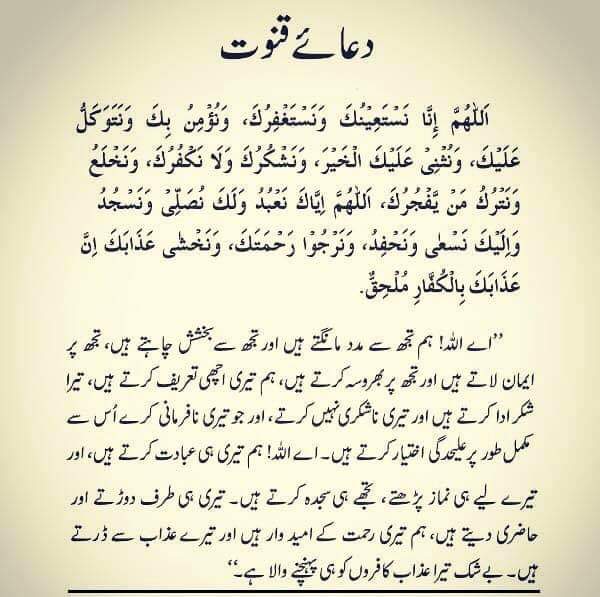 دعائے قنوت
اَللّٰهُمَّ إِنَّا نَسْتَعِيْنُكَ وَنَسْتَغْفِرُكَ، وَنُؤْمِنُ بِكَ وَنَتَوَكَّلُ
عَلَيْكَ، وَنُثْنِىْ عَلَيْكَ الْخَيْرَ، وَنَشْكُرُكَ وَلَا نَكْفُرُكَ، وَنَخْلَعُ
وَنَتْرُكُ مَنْ يَّفْجُرُكَ، اَللّٰهُمَّ اِيَّاكَ نَعْبُدُ وَلَكَ نُصَلِّىْ وَنَسْجُدُ
وَاِلَيْكَ نَسْعٰى وَنَحْفِدُ، وَنَرْجُوْا رَحْمَتَكَ، وَنَخْشٰى عَذَابَكَ اِنَّ
عَذَابَكَ بِالْكُفَّارِ مُلْحِقٌ.
’’اے اللہ! ہم تجھ سے مدد مانگتے ہیں اور تجھ سے بخشش چاہتے ہیں، تجھ پر
ایمان لاتے ہیں اور تجھ پر بھروسہ کرتے ہیں، ہم تیری اچھی تعریف کرتے ہیں، تیرا
شکر ادا کرتے ہیں اور تیری ناشکری نہیں کرتے، اور جو تیری نافرمانی کرے اُس سے
مکمل طور پر علیحدگی اختیار کرتے ہیں۔ اے اللہ! ہم تیری ہی عبادت کرتے ہیں، اور
تیرے لیے ہی نماز پڑھتے، تجھے ہی سجدہ کرتے ہیں۔ تیری ہی طرف دوڑتے اور
حاضری دیتے ہیں، ہم تیری رحمت کے امید وار ہیں اور تیرے عذاب سے ڈرتے
ہیں۔ بے شک تیرا عذاب کافروں کو ہی پہنچنے والا ہے۔‘‘